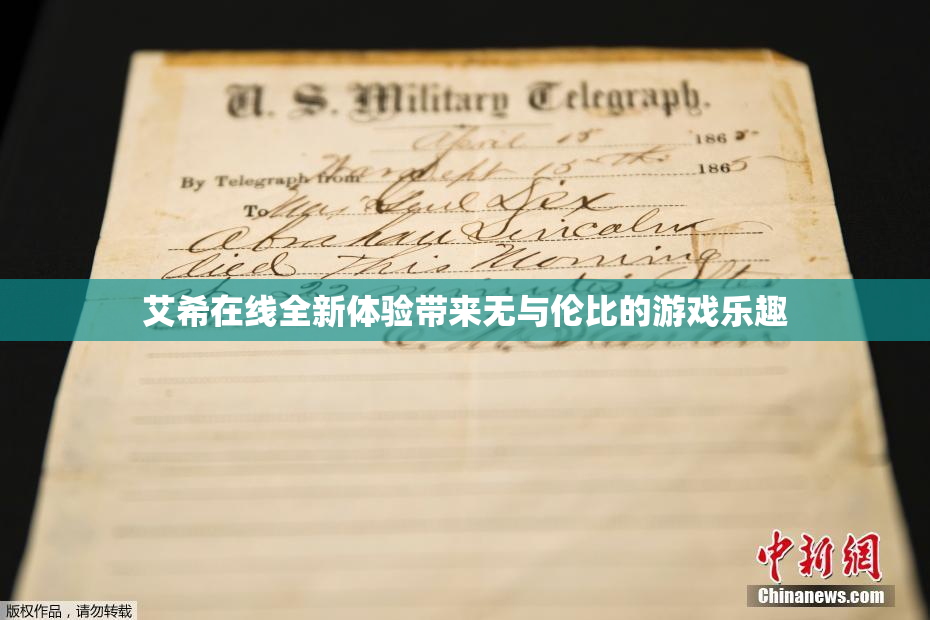 U. S. Military Telegraph.
April 15 1865
By Telegraph from War Dept 15th 1865
To Maj Genl Dix
Abraham Lincoln
died This Morning
at 22 minutes after
艾希在线全新体验带来无与伦比的游戏乐趣
中新網
Chinanews.com
版权作品，请勿转载